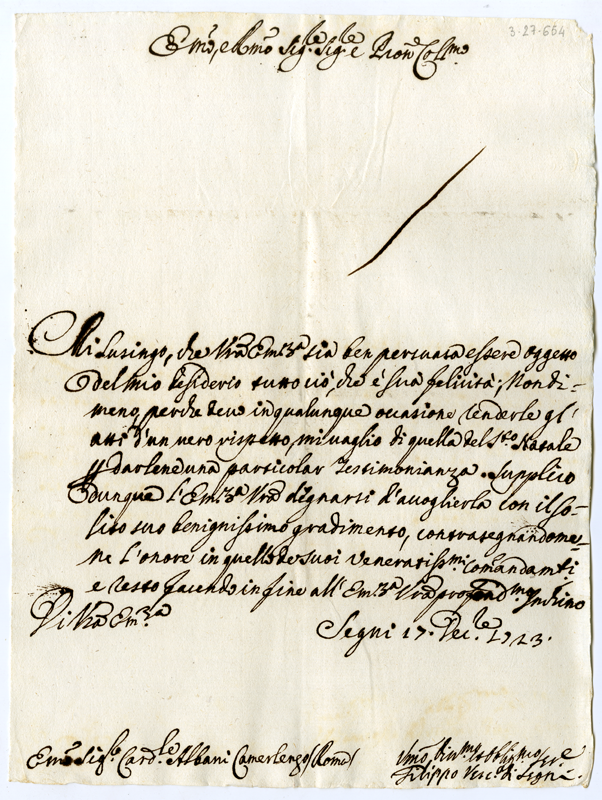 3-27-664
Em̃o, e Rmo Sig.le Sig.le e Pron Col.mo
Mi lusingo, che Vr̃a Em.za sia ben persuasa essere oggetto
del mio desiderio tutto ciò, che è sua felicità; Non di-
meno, perche devo in qualunque occasione renderle gl'
atti d'un vero rispetto, mi vaglio di quella del S.to Natale
p darlene una particolar testimonianza. Supplico
dunque l'Em.za Vr̃a dignarsi d'accoglierla con il so-
lito suo benignissimo gradimento, contrasegnandome-
ne l'onore in quello de suoi veneratiss.mi comandam.ti,
e resto facendo in fine all'Em.za Vr̃a profond.mo Inchino
Di Vr̃a Em.za
Segni 17. Dec.le 1723.
Em̃o Sig.le Card.le Albani Camerlengo (Roma)
Um̃o, Div.mo et Obblig.mo Ser.e
Filippo Vesc.o di Segni.